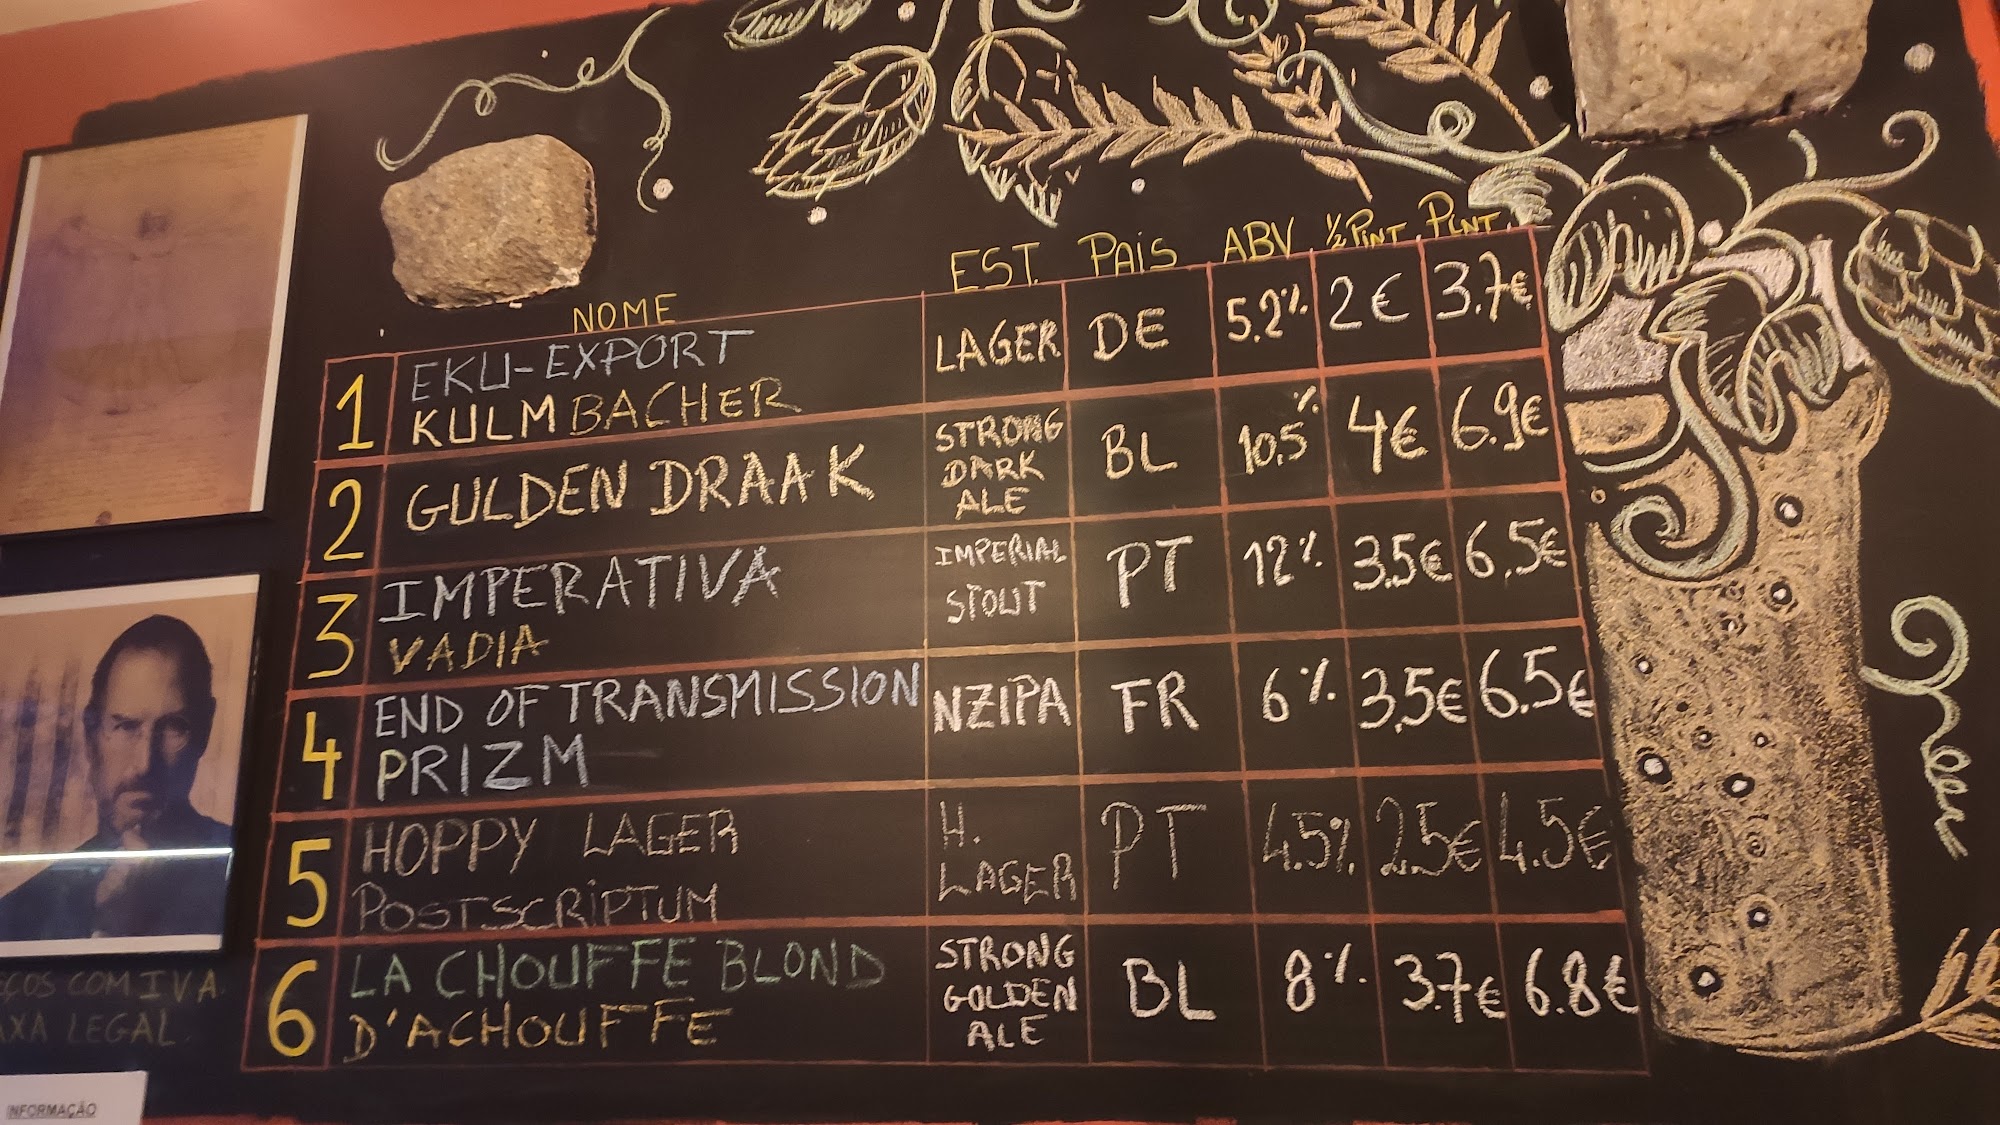 NOME EST. PAÍS ABV ½ PINT PINT
1 EKU-EXPORT KULMBACHER LAGER DE 5.2% 2€ 3.7€
2 GULDEN DRAAK STRONG DARK ALE BL 10.5% 4€ 6.9€
3 IMPERATIVA VADIA IMPERIAL STOUT PT 12% 3.5€ 6.5€
4 END OF TRANSMISSION PRIZM NZIPA FR 6% 3,5€ 6.5€
5 HOPPY LAGER POSTSCRIPTUM H. LAGER PT 4.5% 2.5€ 4.5€
6 LA CHOUFFE BLOND D'ACHOUFFE STRONG GOLDEN ALE BL 8% 3.7€ 6.8€
COM IVA.
LEGAL.
INFORMAÇÃO